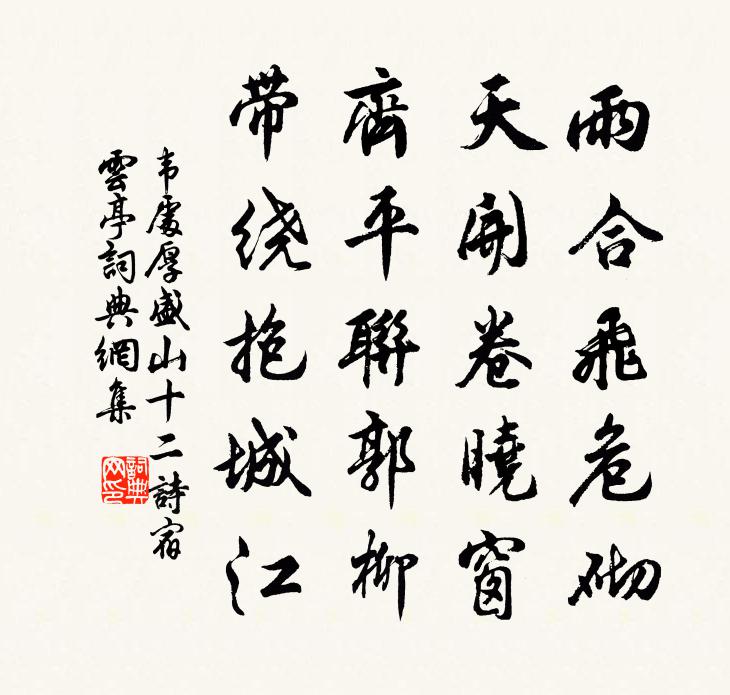 雨合飛危砌
天開卷曉窗
齊平聯郭柳
带绕抱城江
韦處厚盛山十二詩宿
雲亭詞典網集
詞典網印